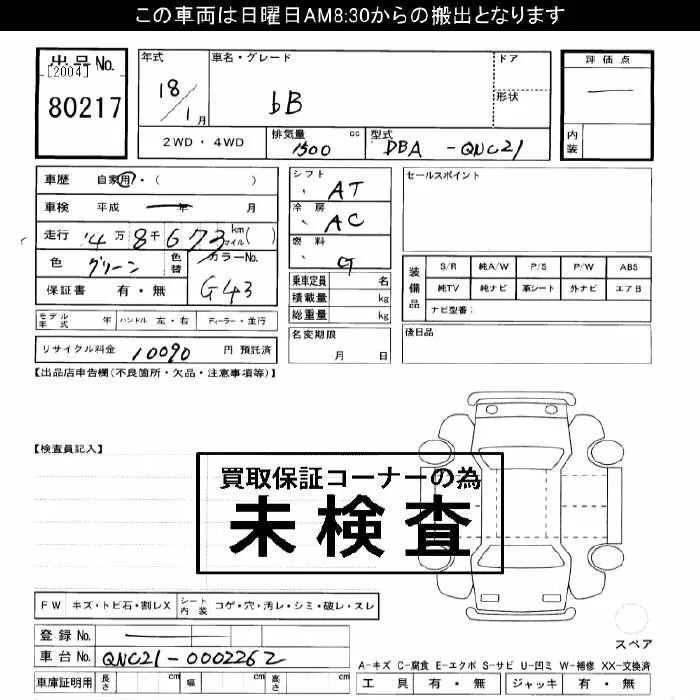 この車両は日曜日AM8:30からの搬出となります
出品No.
[2004]
80217
年式 18/1月
車名・グレード bB
ドア
形状
評価点 一
内装
2WD・4WD
排気量 1500 cc
型式 DBA - QNC21
車歴 自家用・( )
車検 平成 ― 年 月
走行 4万8千673km マイル( )
色 グリーン 色替 カラーNo. G43
保証書 有・無
シフト AT
冷房 AC
燃料 G
乗車定員 名
積載量 kg
総重量 kg
セールスポイント
装備品
S/R 純A/W P/S P/W ABS
純TV 純ナビ 革シート 外ナビ エアB
ナビ型番:
モデル年式 年 ハンドル 左・右 ディーラー・並行
名変期限 月 日
後日品
リサイクル料金 10090 円 預託済
【出品店申告欄(不良箇所・欠品・注意事項等)】
【検査員記入】
買取保証コーナーの為
未検査
FW キズ・トビ石・割レX シート内装 コゲ・穴・汚レ・シミ・破レ・スレ
登録No. ―
車台No. QNC21-0002262
スペア
A-キズ C-腐食 E-エクボ S-サビ U-凹ミ W-補修 XX-交換済
車庫証明用 長さ cm 幅 cm 高さ cm
工具 有・無 ジャッキ 有・無